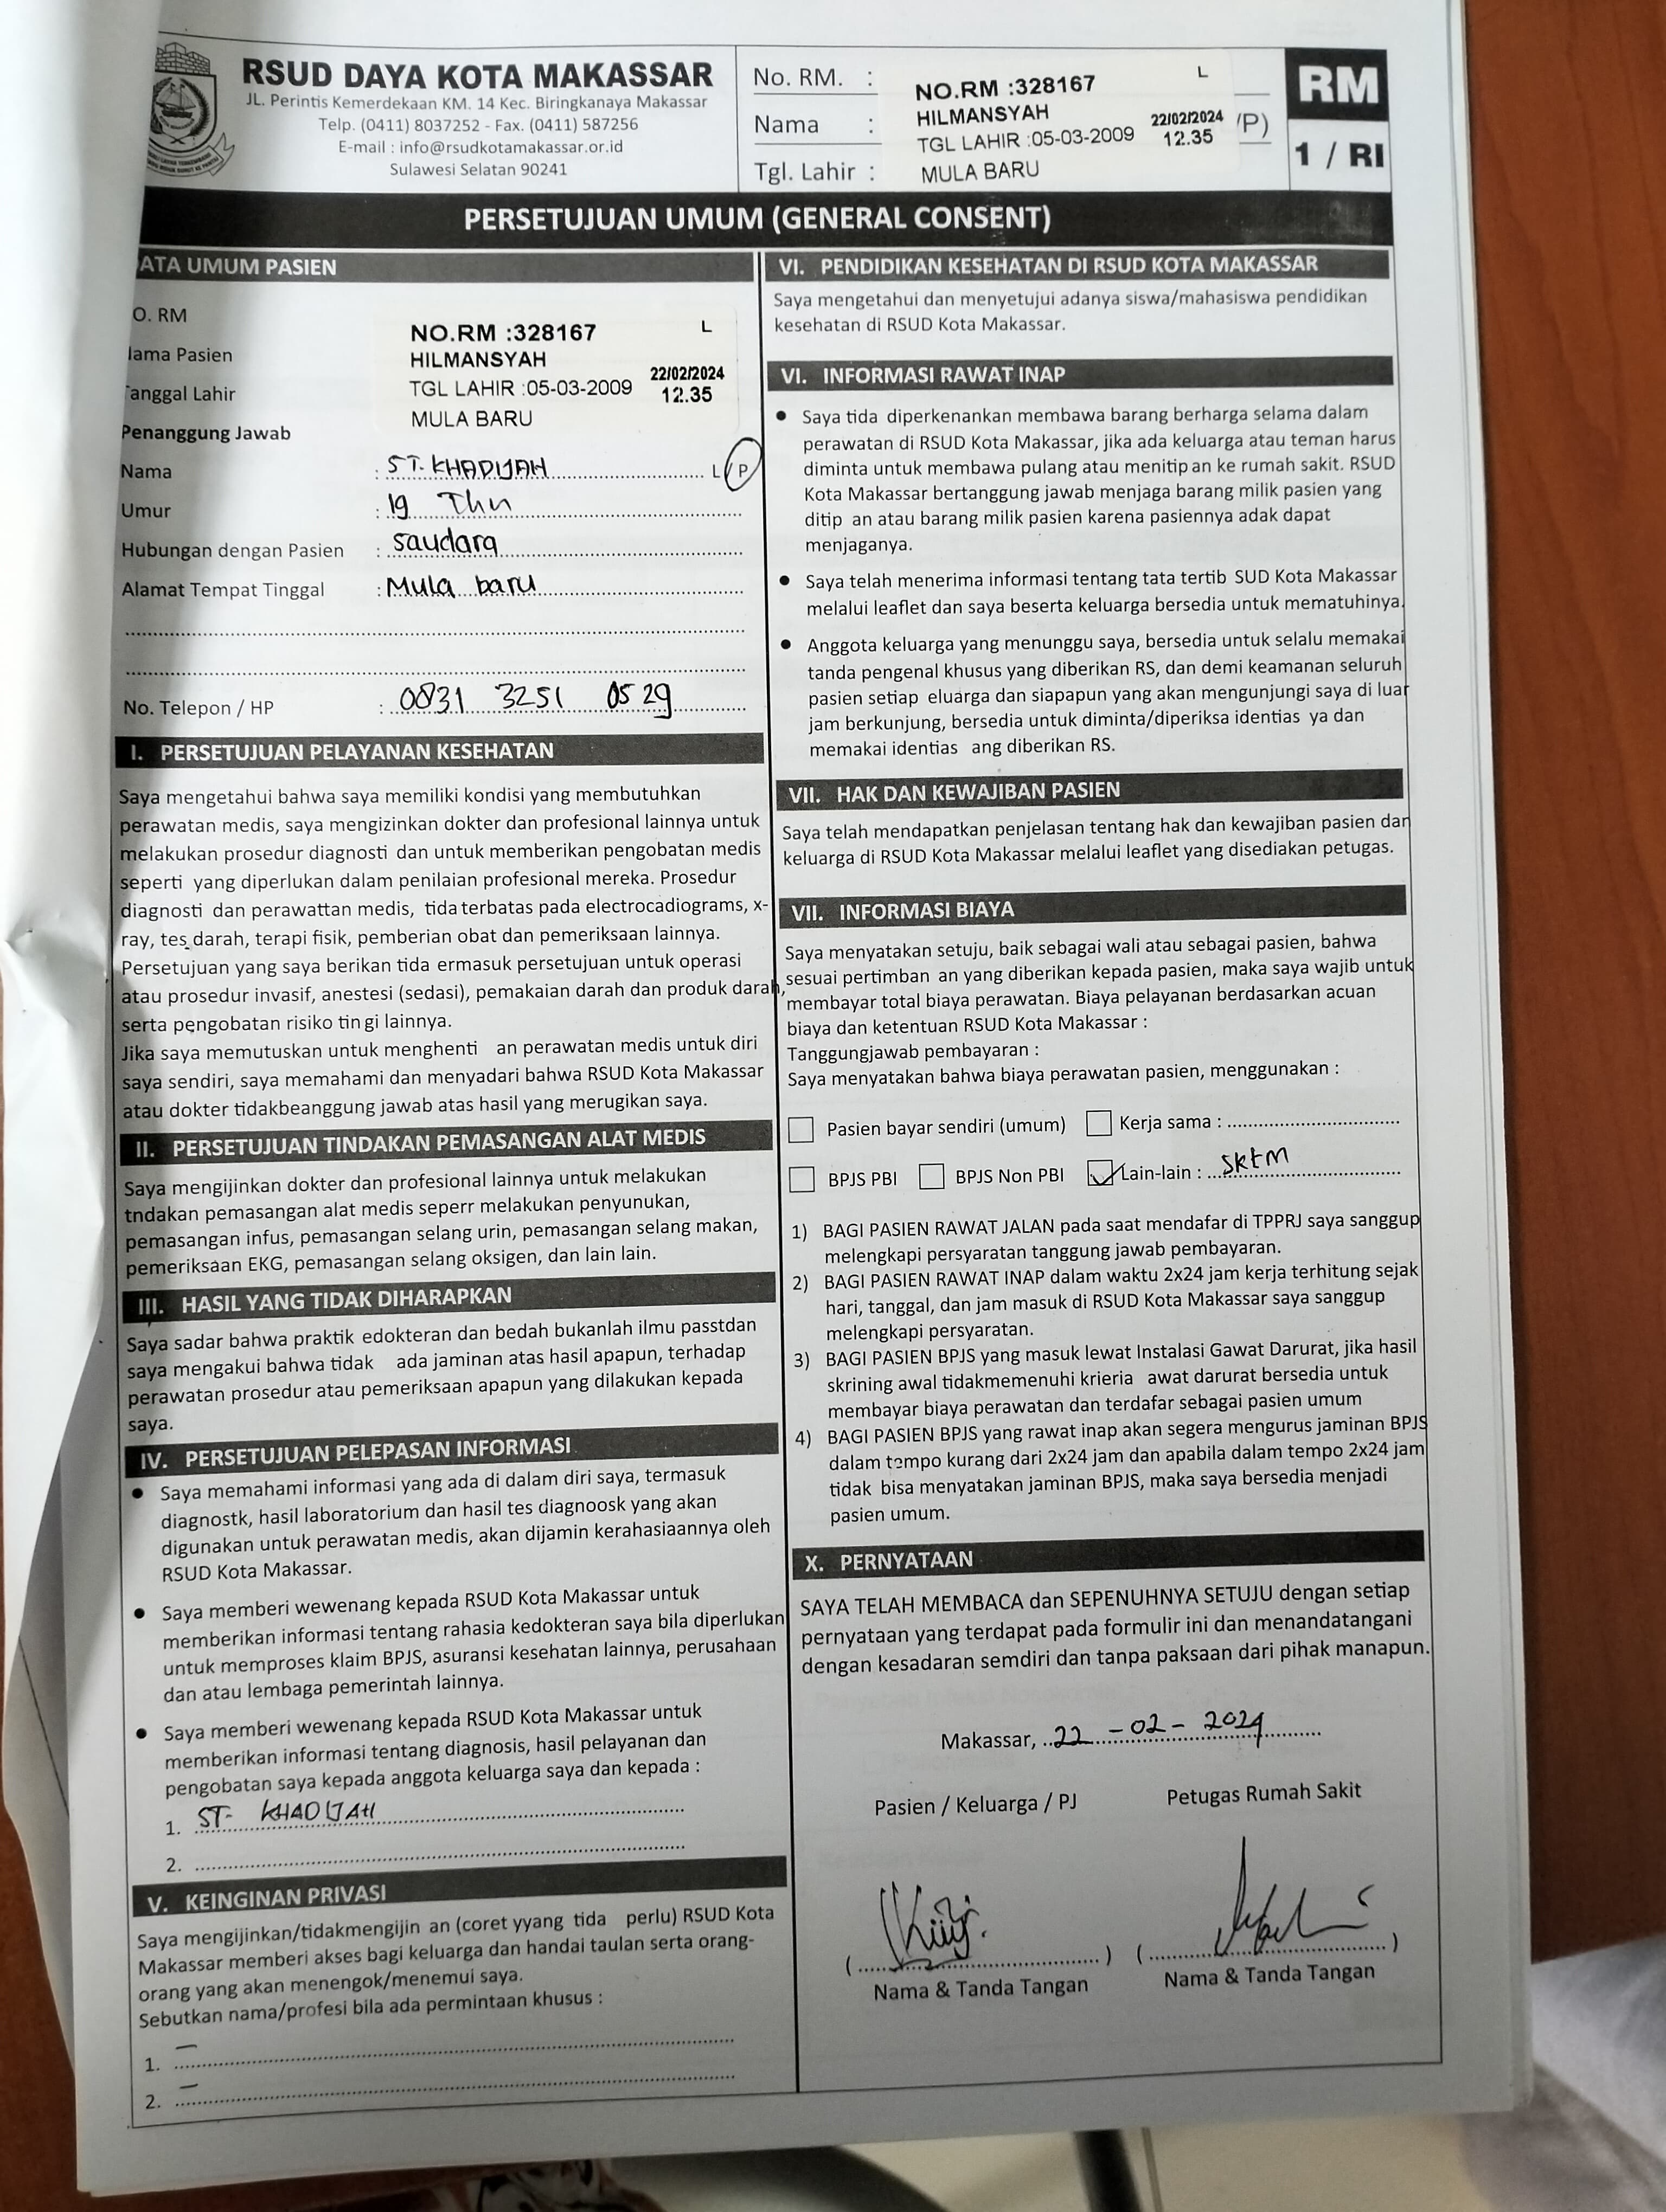 RSUD DAYA KOTA MAKASSAR
JL. Perintis Kemerdekaan KM. 14 Kec. Biringkanaya Makassar
Telp. (0411) 8037252 - Fax. (0411) 587256
E-mail : info@rsudkotamakassar.or.id
Sulawesi Selatan 90241
No. RM. :
Nama :
Tgl. Lahir :
NO.RM :328167 L
HILMANSYAH
TGL LAHIR :05-03-2009
22/02/2024
12.35
MULA BARU
/P)
RM
1 / RI
PERSETUJUAN UMUM (GENERAL CONSENT)
ATA UMUM PASIEN
O. RM
lama Pasien
anggal Lahir
NO.RM :328167 L
HILMANSYAH
TGL LAHIR :05-03-2009
22/02/2024
12.35
MULA BARU
Penanggung Jawab
Nama : ST. KHADIJAH L/P
Umur : 19 Thn
Hubungan dengan Pasien : Saudara
Alamat Tempat Tinggal : Mula baru
No. Telepon / HP : 0831 3251 0529
I. PERSETUJUAN PELAYANAN KESEHATAN
Saya mengetahui bahwa saya memiliki kondisi yang membutuhkan
perawatan medis, saya mengizinkan dokter dan profesional lainnya untuk
melakukan prosedur diagnosti dan untuk memberikan pengobatan medis
seperti yang diperlukan dalam penilaian profesional mereka. Prosedur
diagnosti dan perawattan medis, tida terbatas pada electrocadiograms, x-
ray, tes darah, terapi fisik, pemberian obat dan pemeriksaan lainnya.
Persetujuan yang saya berikan tida ermasuk persetujuan untuk operasi
atau prosedur invasif, anestesi (sedasi), pemakaian darah dan produk darah,
serta pengobatan risiko tin gi lainnya.
Jika saya memutuskan untuk menghenti an perawatan medis untuk diri
saya sendiri, saya memahami dan menyadari bahwa RSUD Kota Makassar
atau dokter tidakbeanggung jawab atas hasil yang merugikan saya.
II. PERSETUJUAN TINDAKAN PEMASANGAN ALAT MEDIS
Saya mengijinkan dokter dan profesional lainnya untuk melakukan
tndakan pemasangan alat medis seperr melakukan penyunukan,
pemasangan infus, pemasangan selang urin, pemasangan selang makan,
pemeriksaan EKG, pemasangan selang oksigen, dan lain lain.
III. HASIL YANG TIDAK DIHARAPKAN
Saya sadar bahwa praktik edokteran dan bedah bukanlah ilmu passtdan
saya mengakui bahwa tidak ada jaminan atas hasil apapun, terhadap
perawatan prosedur atau pemeriksaan apapun yang dilakukan kepada
saya.
IV. PERSETUJUAN PELEPASAN INFORMASI
● Saya memahami informasi yang ada di dalam diri saya, termasuk
diagnostk, hasil laboratorium dan hasil tes diagnoosk yang akan
digunakan untuk perawatan medis, akan dijamin kerahasiaannya oleh
RSUD Kota Makassar.
● Saya memberi wewenang kepada RSUD Kota Makassar untuk
memberikan informasi tentang rahasia kedokteran saya bila diperlukan
untuk memproses klaim BPJS, asuransi kesehatan lainnya, perusahaan
dan atau lembaga pemerintah lainnya.
● Saya memberi wewenang kepada RSUD Kota Makassar untuk
memberikan informasi tentang diagnosis, hasil pelayanan dan
pengobatan saya kepada anggota keluarga saya dan kepada :
1. ST- KHADIJAH
2.
V. KEINGINAN PRIVASI
Saya mengijinkan/tidakmengijin an (coret yyang tida perlu) RSUD Kota
Makassar memberi akses bagi keluarga dan handai taulan serta orang-
orang yang akan menengok/menemui saya.
Sebutkan nama/profesi bila ada permintaan khusus :
1. –
2. –
VI. PENDIDIKAN KESEHATAN DI RSUD KOTA MAKASSAR
Saya mengetahui dan menyetujui adanya siswa/mahasiswa pendidikan
kesehatan di RSUD Kota Makassar.
VI. INFORMASI RAWAT INAP
● Saya tida diperkenankan membawa barang berharga selama dalam
perawatan di RSUD Kota Makassar, jika ada keluarga atau teman harus
diminta untuk membawa pulang atau menitip an ke rumah sakit. RSUD
Kota Makassar bertanggung jawab menjaga barang milik pasien yang
ditip an atau barang milik pasien karena pasiennya adak dapat
menjaganya.
● Saya telah menerima informasi tentang tata tertib SUD Kota Makassar
melalui leaflet dan saya beserta keluarga bersedia untuk mematuhinya.
● Anggota keluarga yang menunggu saya, bersedia untuk selalu memakai
tanda pengenal khusus yang diberikan RS, dan demi keamanan seluruh
pasien setiap eluarga dan siapapun yang akan mengunjungi saya di luar
jam berkunjung, bersedia untuk diminta/diperiksa identias ya dan
memakai identias ang diberikan RS.
VII. HAK DAN KEWAJIBAN PASIEN
Saya telah mendapatkan penjelasan tentang hak dan kewajiban pasien dan
keluarga di RSUD Kota Makassar melalui leaflet yang disediakan petugas.
VII. INFORMASI BIAYA
Saya menyatakan setuju, baik sebagai wali atau sebagai pasien, bahwa
sesuai pertimban an yang diberikan kepada pasien, maka saya wajib untuk
membayar total biaya perawatan. Biaya pelayanan berdasarkan acuan
biaya dan ketentuan RSUD Kota Makassar :
Tanggungjawab pembayaran :
Saya menyatakan bahwa biaya perawatan pasien, menggunakan :
Pasien bayar sendiri (umum) Kerja sama :
BPJS PBI BPJS Non PBI Lain-lain : SKTM
1) BAGI PASIEN RAWAT JALAN pada saat mendafar di TPPRJ saya sanggup
melengkapi persyaratan tanggung jawab pembayaran.
2) BAGI PASIEN RAWAT INAP dalam waktu 2x24 jam kerja terhitung sejak
hari, tanggal, dan jam masuk di RSUD Kota Makassar saya sanggup
melengkapi persyaratan.
3) BAGI PASIEN BPJS yang masuk lewat Instalasi Gawat Darurat, jika hasil
skrining awal tidakmemenuhi krieria awat darurat bersedia untuk
membayar biaya perawatan dan terdafar sebagai pasien umum
4) BAGI PASIEN BPJS yang rawat inap akan segera mengurus jaminan BPJS
dalam tempo kurang dari 2x24 jam dan apabila dalam tempo 2x24 jam
tidak bisa menyatakan jaminan BPJS, maka saya bersedia menjadi
pasien umum.
X. PERNYATAAN
SAYA TELAH MEMBACA dan SEPENUHNYA SETUJU dengan setiap
pernyataan yang terdapat pada formulir ini dan menandatangani
dengan kesadaran semdiri dan tanpa paksaan dari pihak manapun.
Makassar, 22 - 02 - 2024
Pasien / Keluarga / PJ Petugas Rumah Sakit
( ) ( )
Nama & Tanda Tangan Nama & Tanda Tangan